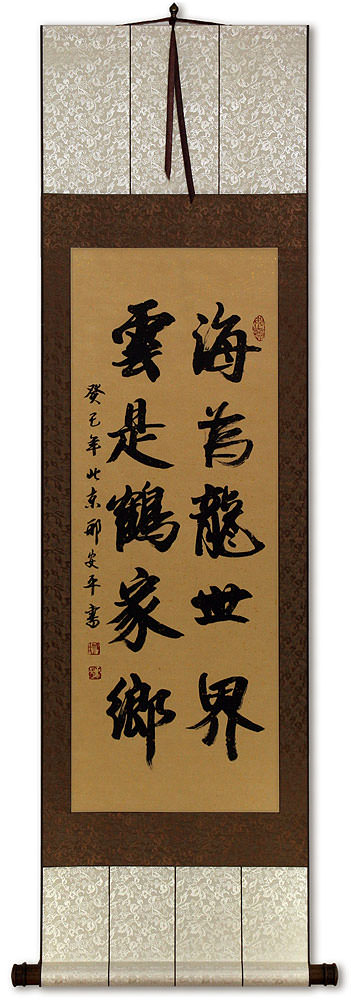 海為龍世界
雲是鶴家鄉
癸巳年北京邢安平書